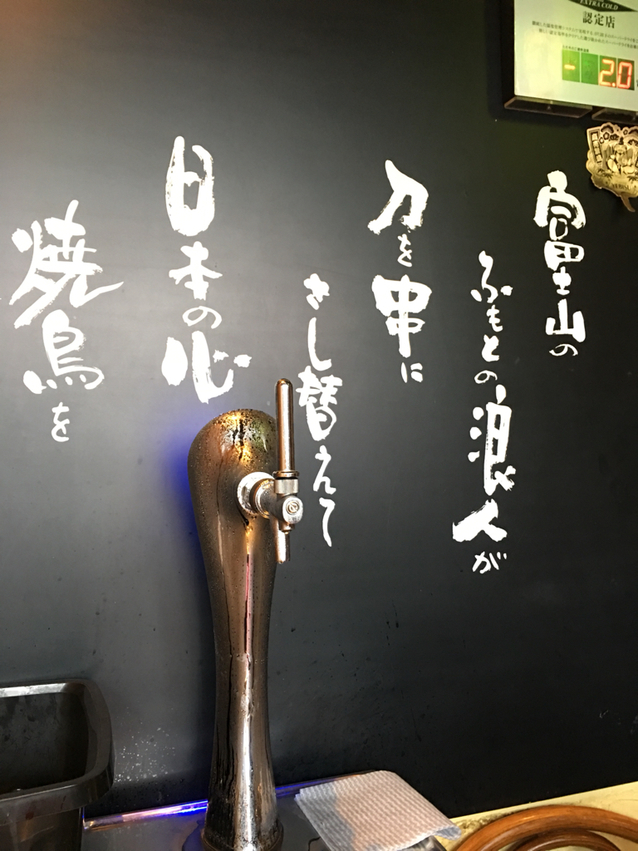 富士山の
ふもとの浪人が
刀を串に
さし替えて
日本の心
焼鳥を
EXTRA COLD
認定店
-2.0